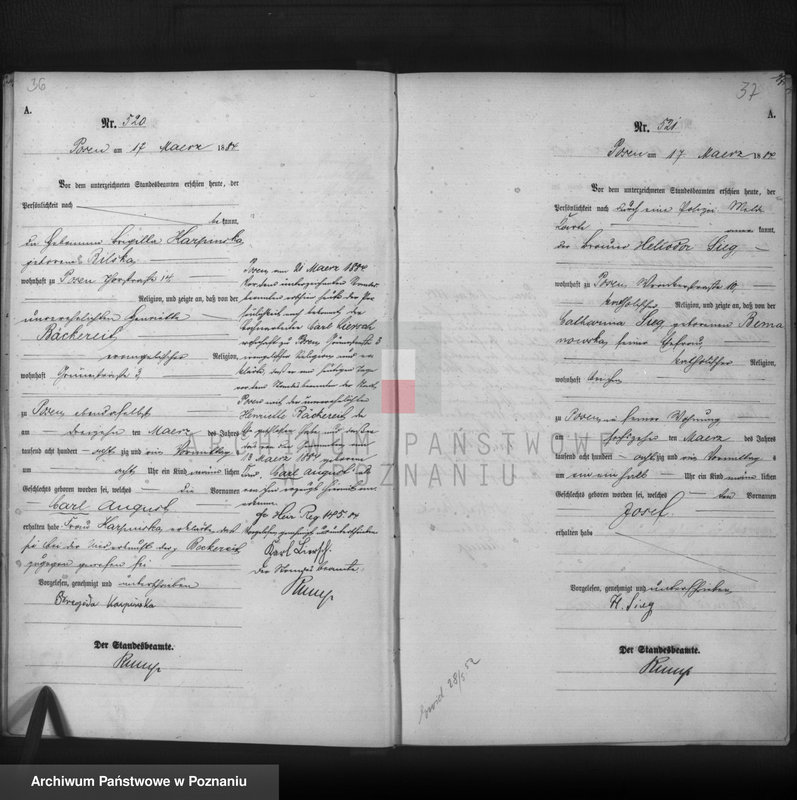 36
A.
Nr. 520
Posen am 17 Maerz 1884
Vor dem unterzeichneten Standesbeamten erschien heute, der
Persönlichkeit nach
bekannt,
die Hebamme Brigitta Karpinska
geborene Bilska
wohnhaft zu Posen Thorstraße 14
Religion, und zeigte an, daß von der
unverehelichten Henriette
Bäckereit
evangelischer Religion,
wohnhaft Grünestraße 3
zu Posen ebendaselbst
am dreizehn ten Maerz des Jahres
tausend acht hundert achtzig und vier Vormittag
um acht Uhr ein Kind männlichen
Geschlechts geboren worden sei, welches die Vornamen
Carl August
erhalten habe Frau Karpinska erklärte, daß
sie bei der Niederkunft der Bäckereit
zugegen gewesen sei
Vorgelesen, genehmigt und unterschrieben
Karpinska
Der Standesbeamte.
Rump
Posen am 21 Maerz 1884
Vor dem unterzeichneten Standes
beamten erschien heute der Per
sönlichkeit nach bekannt der
Carl Liersch
wohnhaft zu Posen Grünestraße 3
evangelischer Religion und er
klärte, daß er am heutigen Tage
vor dem Standesbeamten der Stadt
Posen mit der unverehelichten
Henriette Bäckereit die
Ehe geschlossen habe und
13 Maerz 1884 geborene
Kind Carl August als
Heir Reg 145.84
Vorgelesen genehmigt und unterschrieben
Karl Liersch
Der Standesbeamte:
Rump
37
A.
Nr. 521
Posen am 17 Maerz 1884
Vor dem unterzeichneten Standesbeamten erschien heute, der
Persönlichkeit nach durch eine Polizei Melde
karte anerkannt,
der Brauer Heliodor Sieg
wohnhaft zu Posen, Wronkerstraße 10
katholischer Religion, und zeigte an, daß von der
Catharina Sieg geborenen Berna
nowska seiner Ehefrau
katholischer Religion,
wohnhaft bei ihm
zu Posen in seiner Wohnung
am sechzehn ten Maerz des Jahres
tausend acht hundert achtzig und vier Vormittag
um ein ein halb Uhr ein Kind männlichen
Geschlechts geboren worden sei, welches den Vornamen
Josef
erhalten habe
Vorgelesen, genehmigt und unterschrieben
H. Sieg
Der Standesbeamte.
Rump
28/5 52
ARCHIWUM PAŃSTWOWE
W POZNANIU
Archiwum Państwowe w Poznaniu